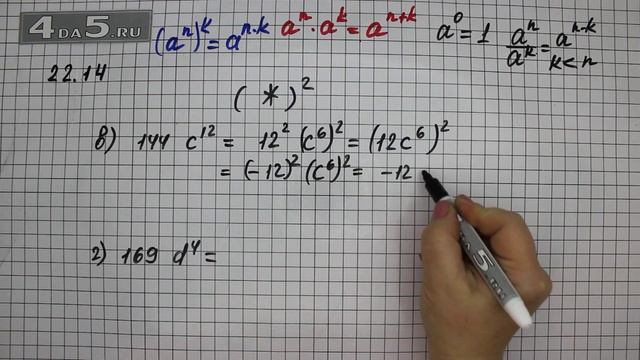 4DA5.RU
(aⁿ)ᵏ = aⁿ·ᵏ aⁿ · aᵏ = aⁿ⁺ᵏ a⁰ = 1 aⁿ/aᵏ = aⁿ⁻ᵏ
k < n
22.14
( * )²
в) 144 c¹² = 12² (c⁶)² = (12c⁶)²
= (-12)² (c⁶)² = -12
г) 169 d⁴ =